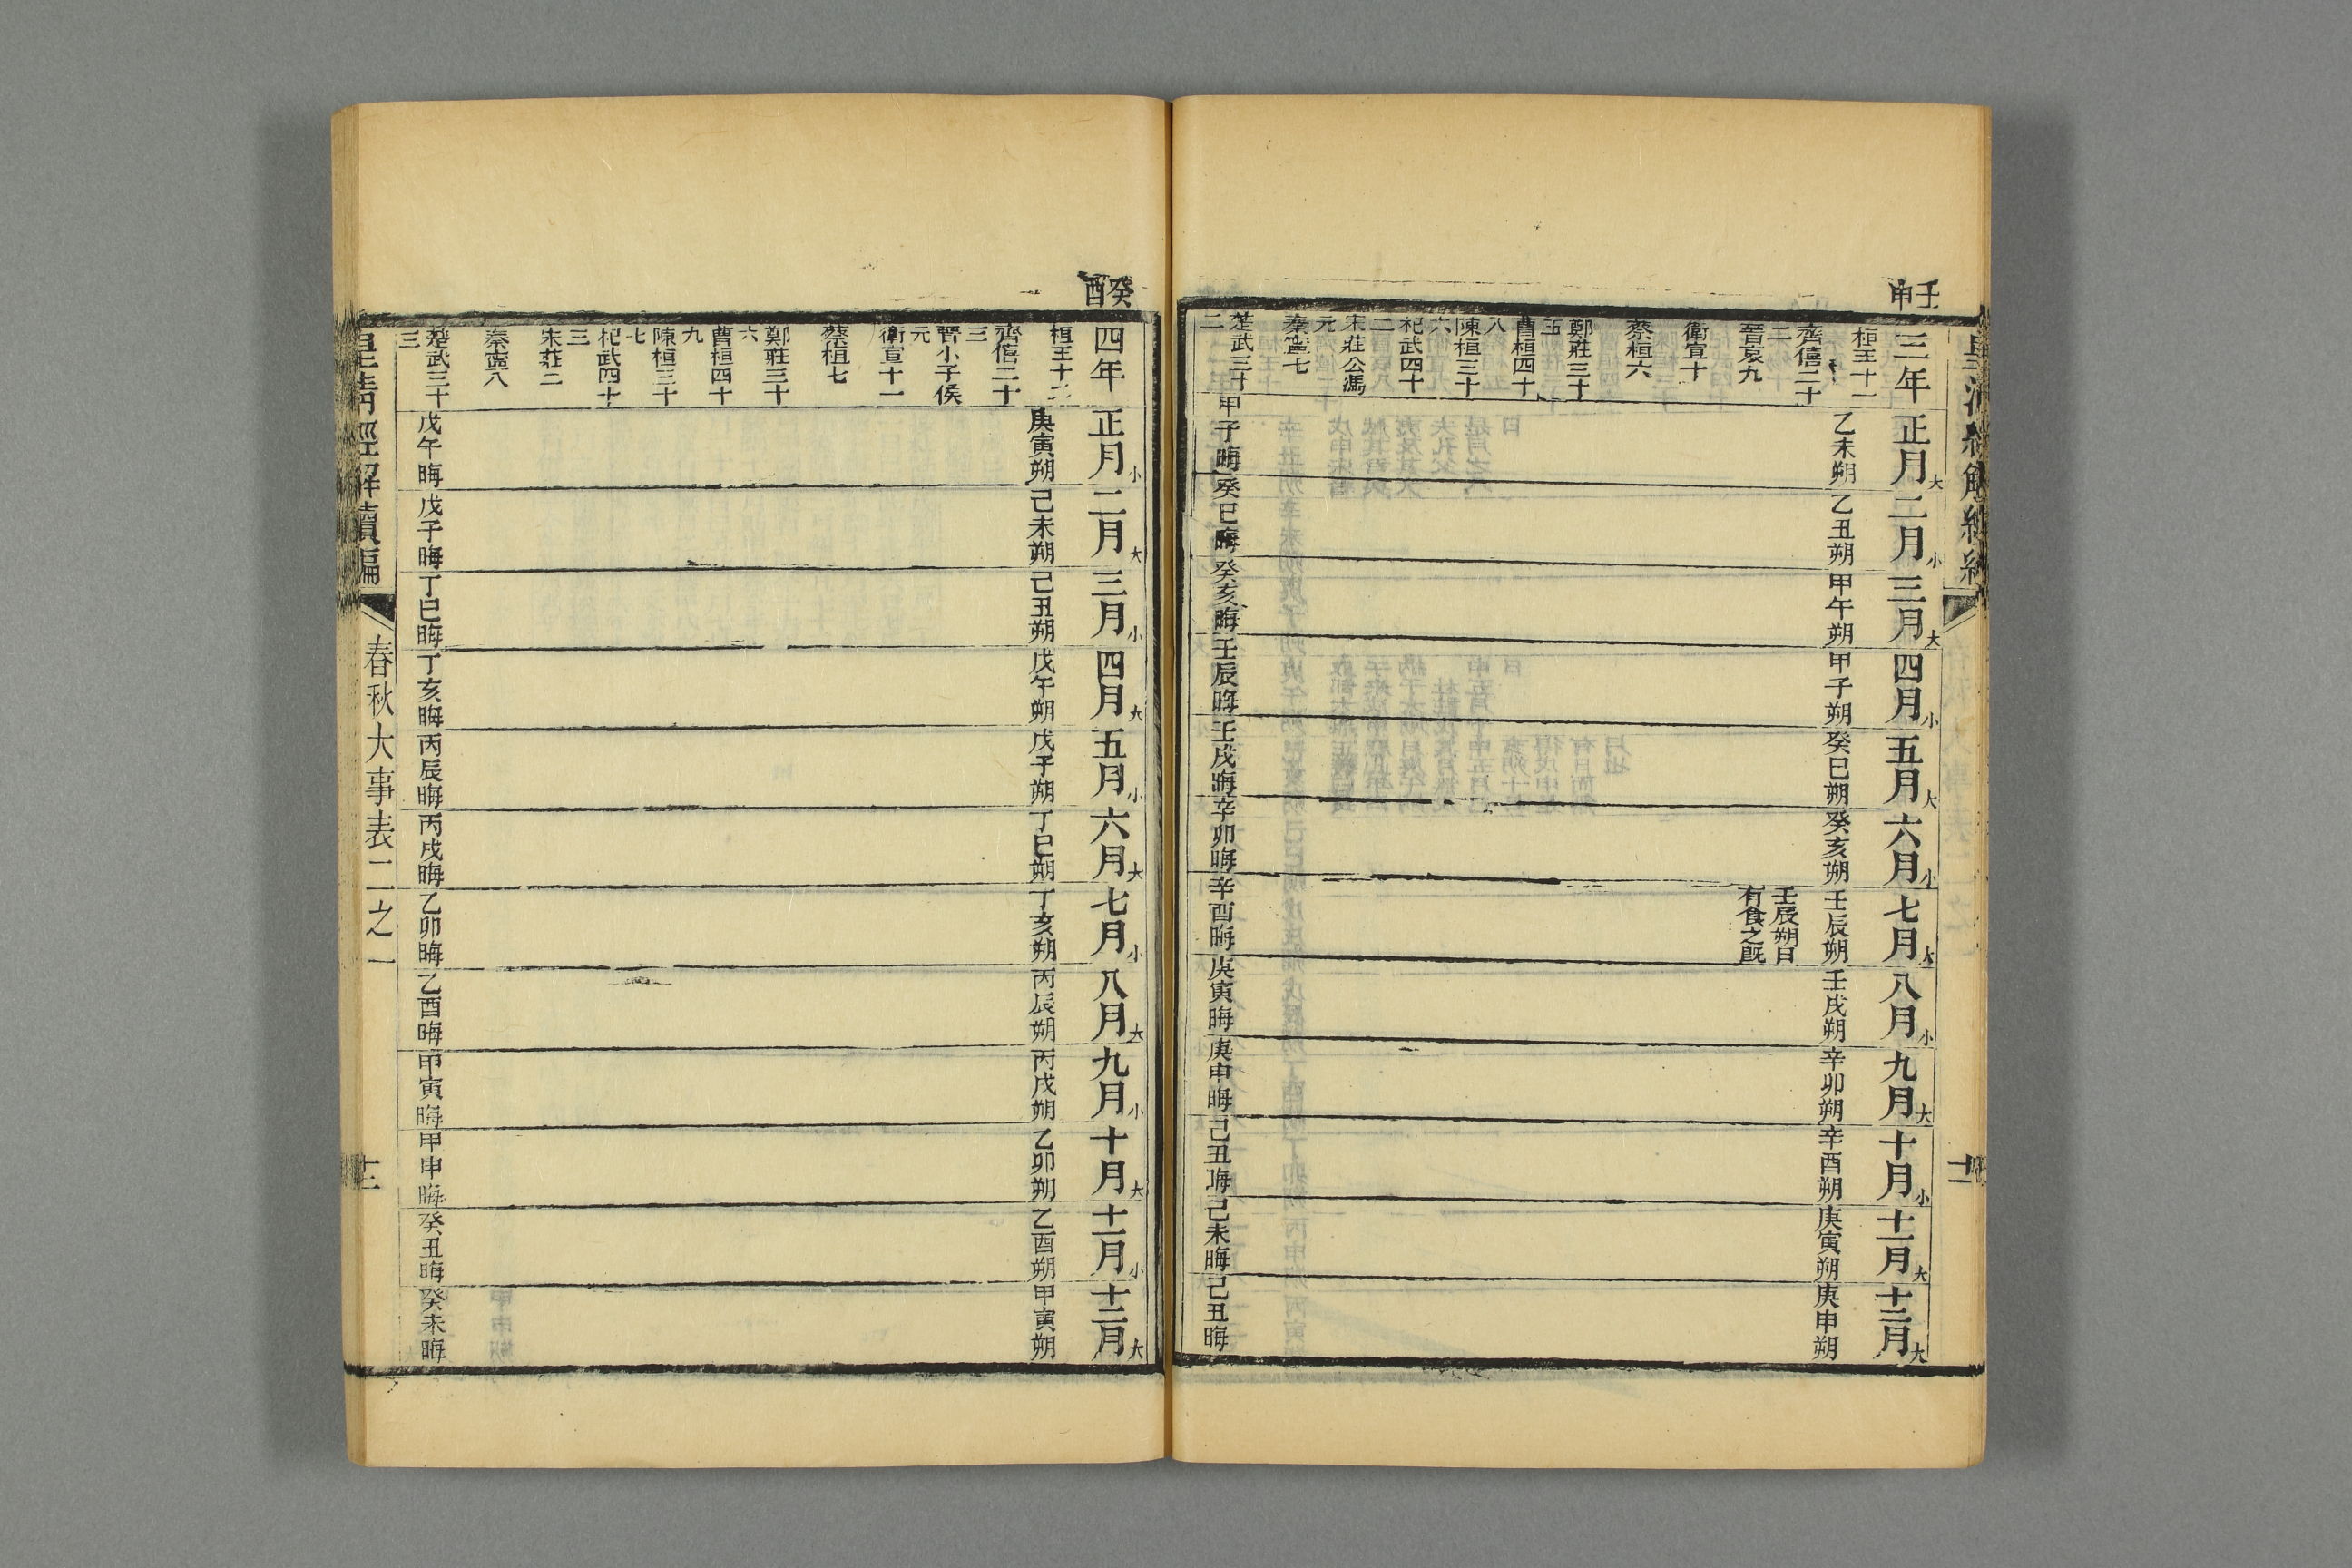 皇清經解續編
壬申
三年
正月大
二月小
三月大
四月小
五月大
六月小
七月大
八月小
九月大
十月小
十一月大
十二月大
桓王十一
齊僖二十
二
晉哀九
衛宣十
蔡桓六
鄭莊三十
五
曹桓四十
八
陳桓三十
六
杞武四十
二
宋莊公馮
元
秦寧七
楚武三十
二
乙未朔
乙丑朔
甲午朔
甲子朔
癸巳朔
癸亥朔
壬辰朔
壬戌朔
辛卯朔
辛酉朔
庚寅朔
庚申朔
壬辰朔日
有食之旣
甲子晦
癸巳晦
癸亥晦
壬辰晦
壬戌晦
辛卯晦
辛酉晦
庚寅晦
庚申晦
己丑晦
己未晦
己丑晦
癸酉
四年
正月小
二月大
三月小
四月大
五月小
六月大
七月小
八月大
九月小
十月大
十一月小
十二月大
桓王十二
齊僖二十
三
晉小子侯
元
衛宣十一
蔡桓七
鄭莊三十
六
曹桓四十
九
陳桓三十
七
杞武四十
三
宋莊二
秦寧八
楚武三十
三
庚寅朔
己未朔
己丑朔
戊午朔
戊子朔
丁巳朔
丁亥朔
丙辰朔
丙戌朔
乙卯朔
乙酉朔
甲寅朔
戊午晦
戊子晦
丁巳晦
丁亥晦
丙辰晦
丙戌晦
乙卯晦
乙酉晦
甲寅晦
甲申晦
癸丑晦
癸未晦
皇清經解續編
春秋大事表二之一
十二